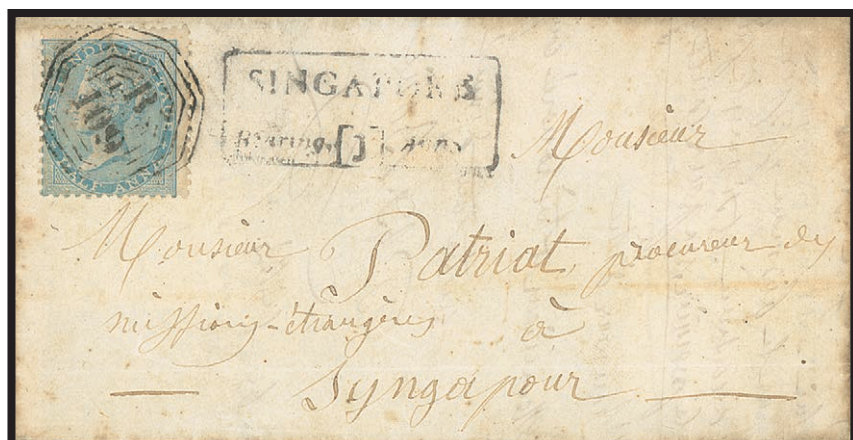 EAST INDIA POSTAGE
HALF ANNA
B
109
SINGAPORE
Bearing [ ] Annas
Monsieur
Monsieur Patriat, procureur des
missions-étrangères à
Syngapour